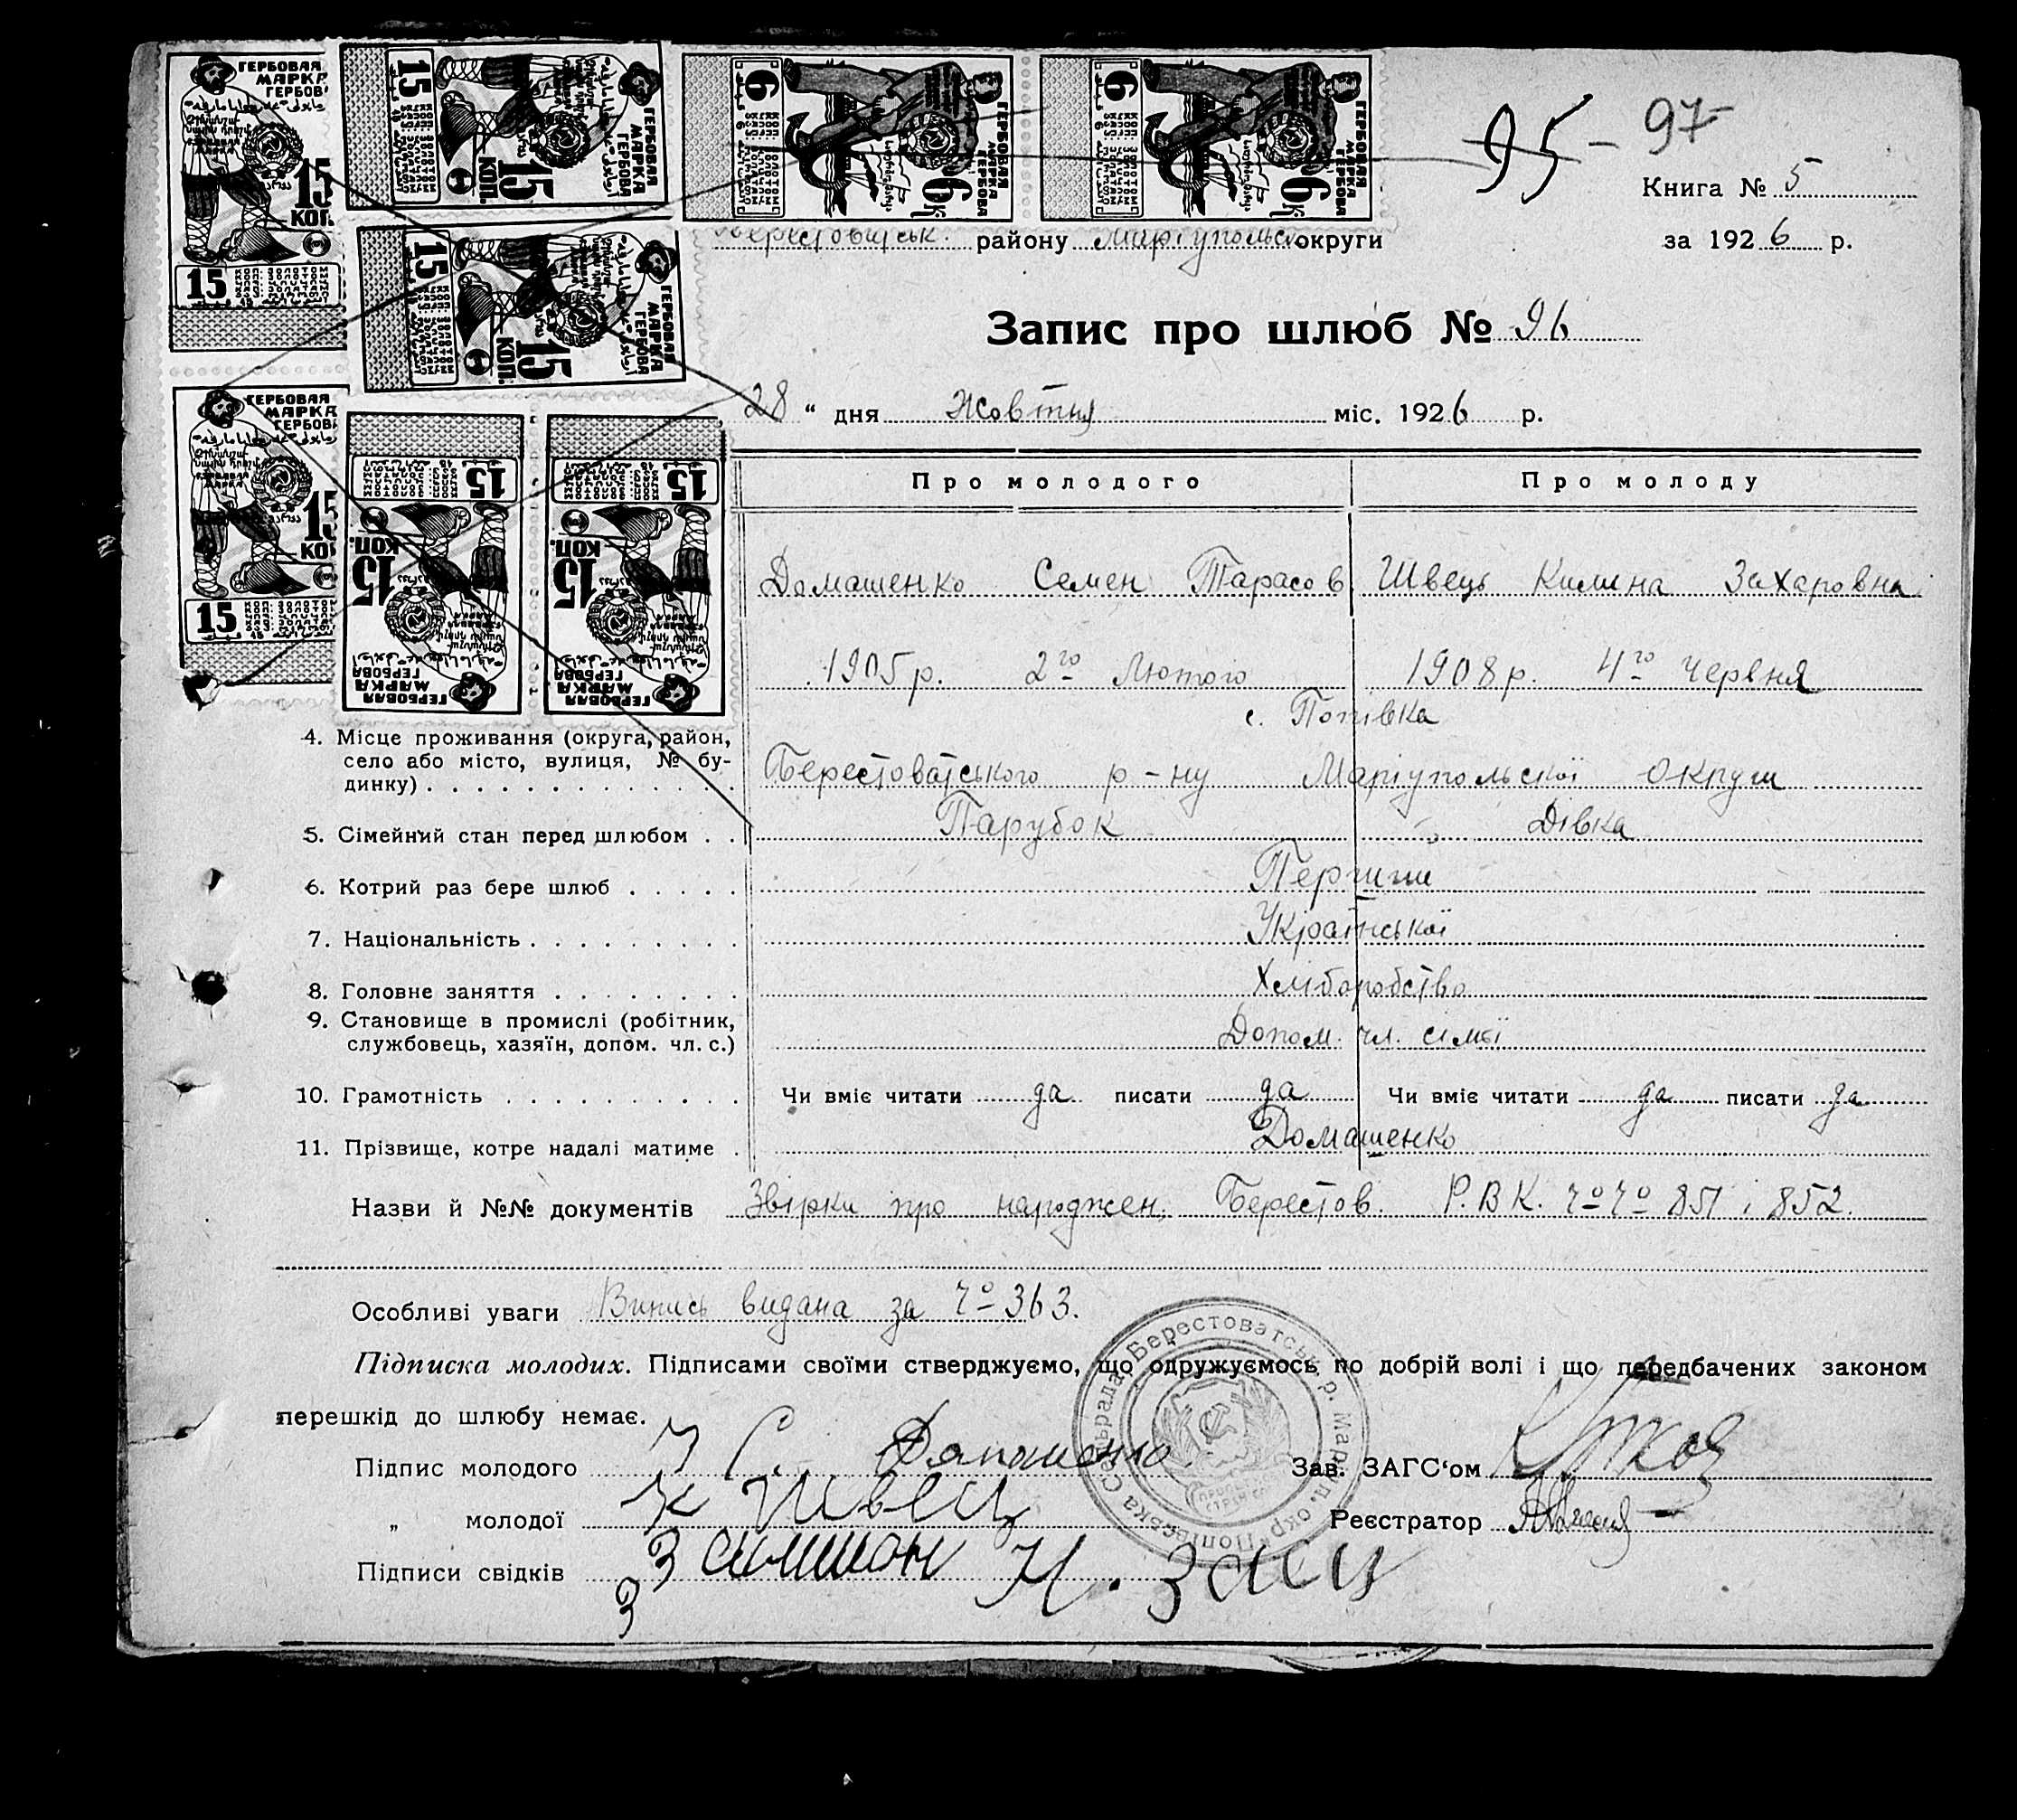 95 - 97
Книга № 5
Берестоватськ. району Маріупольс. округи за 1926 р.
Запис про шлюб № 96
28 " дня Жовтня міс. 1926 р.
Про молодого Про молоду
Домашенко Семен Тарасов Швець Килина Захаровна
1905 р. 2го Лютого 1908 р. 4го Червня
с. Попівка
4. Місце проживання (округа, район, село або місто, вулиця, № бу-
динку) Берестоватського р-ну Маріупольскої округи
5. Сімейний стан перед шлюбом Парубок Дівка
6. Котрий раз бере шлюб Перший
7. Національність Української
8. Головне заняття Хліборобство
9. Становище в промислі (робітник,
службовець, хазяїн, допом. чл. с.) Допом. чл. сімї
10. Грамотність Чи вміє читати да писати да Чи вміє читати да писати да
11. Прізвище, котре надалі матиме Домашенко
Назви й №№ документів Звірки про народжен. Берестов. Р.В.К. ч⁰ч⁰ 851 і 852.
Особливі уваги Випись видана за ч⁰ 363.
Підписка молодих. Підписами своїми стверджуємо, що одружуємось по добрій волі і що передбачених законом
перешкід до шлюбу немає.
Підпис молодого С.
Зав. ЗАГС'ом
„ молодої К Швец
Реєстратор
Підписи свідків Н. Заец
Попівська Сільрада, Берестоватськ. р. Маріуп. окр.
ГЕРБОВАЯ
МАРКА
ГЕРБОВА
15
КОП.
15
ГЕРБОВАЯ
МАРКА
ГЕРБОВА
15
КОП.
15
ГЕРБОВАЯ
МАРКА
ГЕРБОВА
6 К
6
ГЕРБОВАЯ
МАРКА
ГЕРБОВА
6 К
6
ГЕРБОВАЯ
МАРКА
ГЕРБОВА
15
КОП.
15
ГЕРБОВАЯ
МАРКА
ГЕРБОВА
15
КОП.
15
ГЕРБОВАЯ
МАРКА
ГЕРБОВА
15
КОП.
15
ГЕРБОВАЯ
МАРКА
ГЕРБОВА
15
КОП.
15